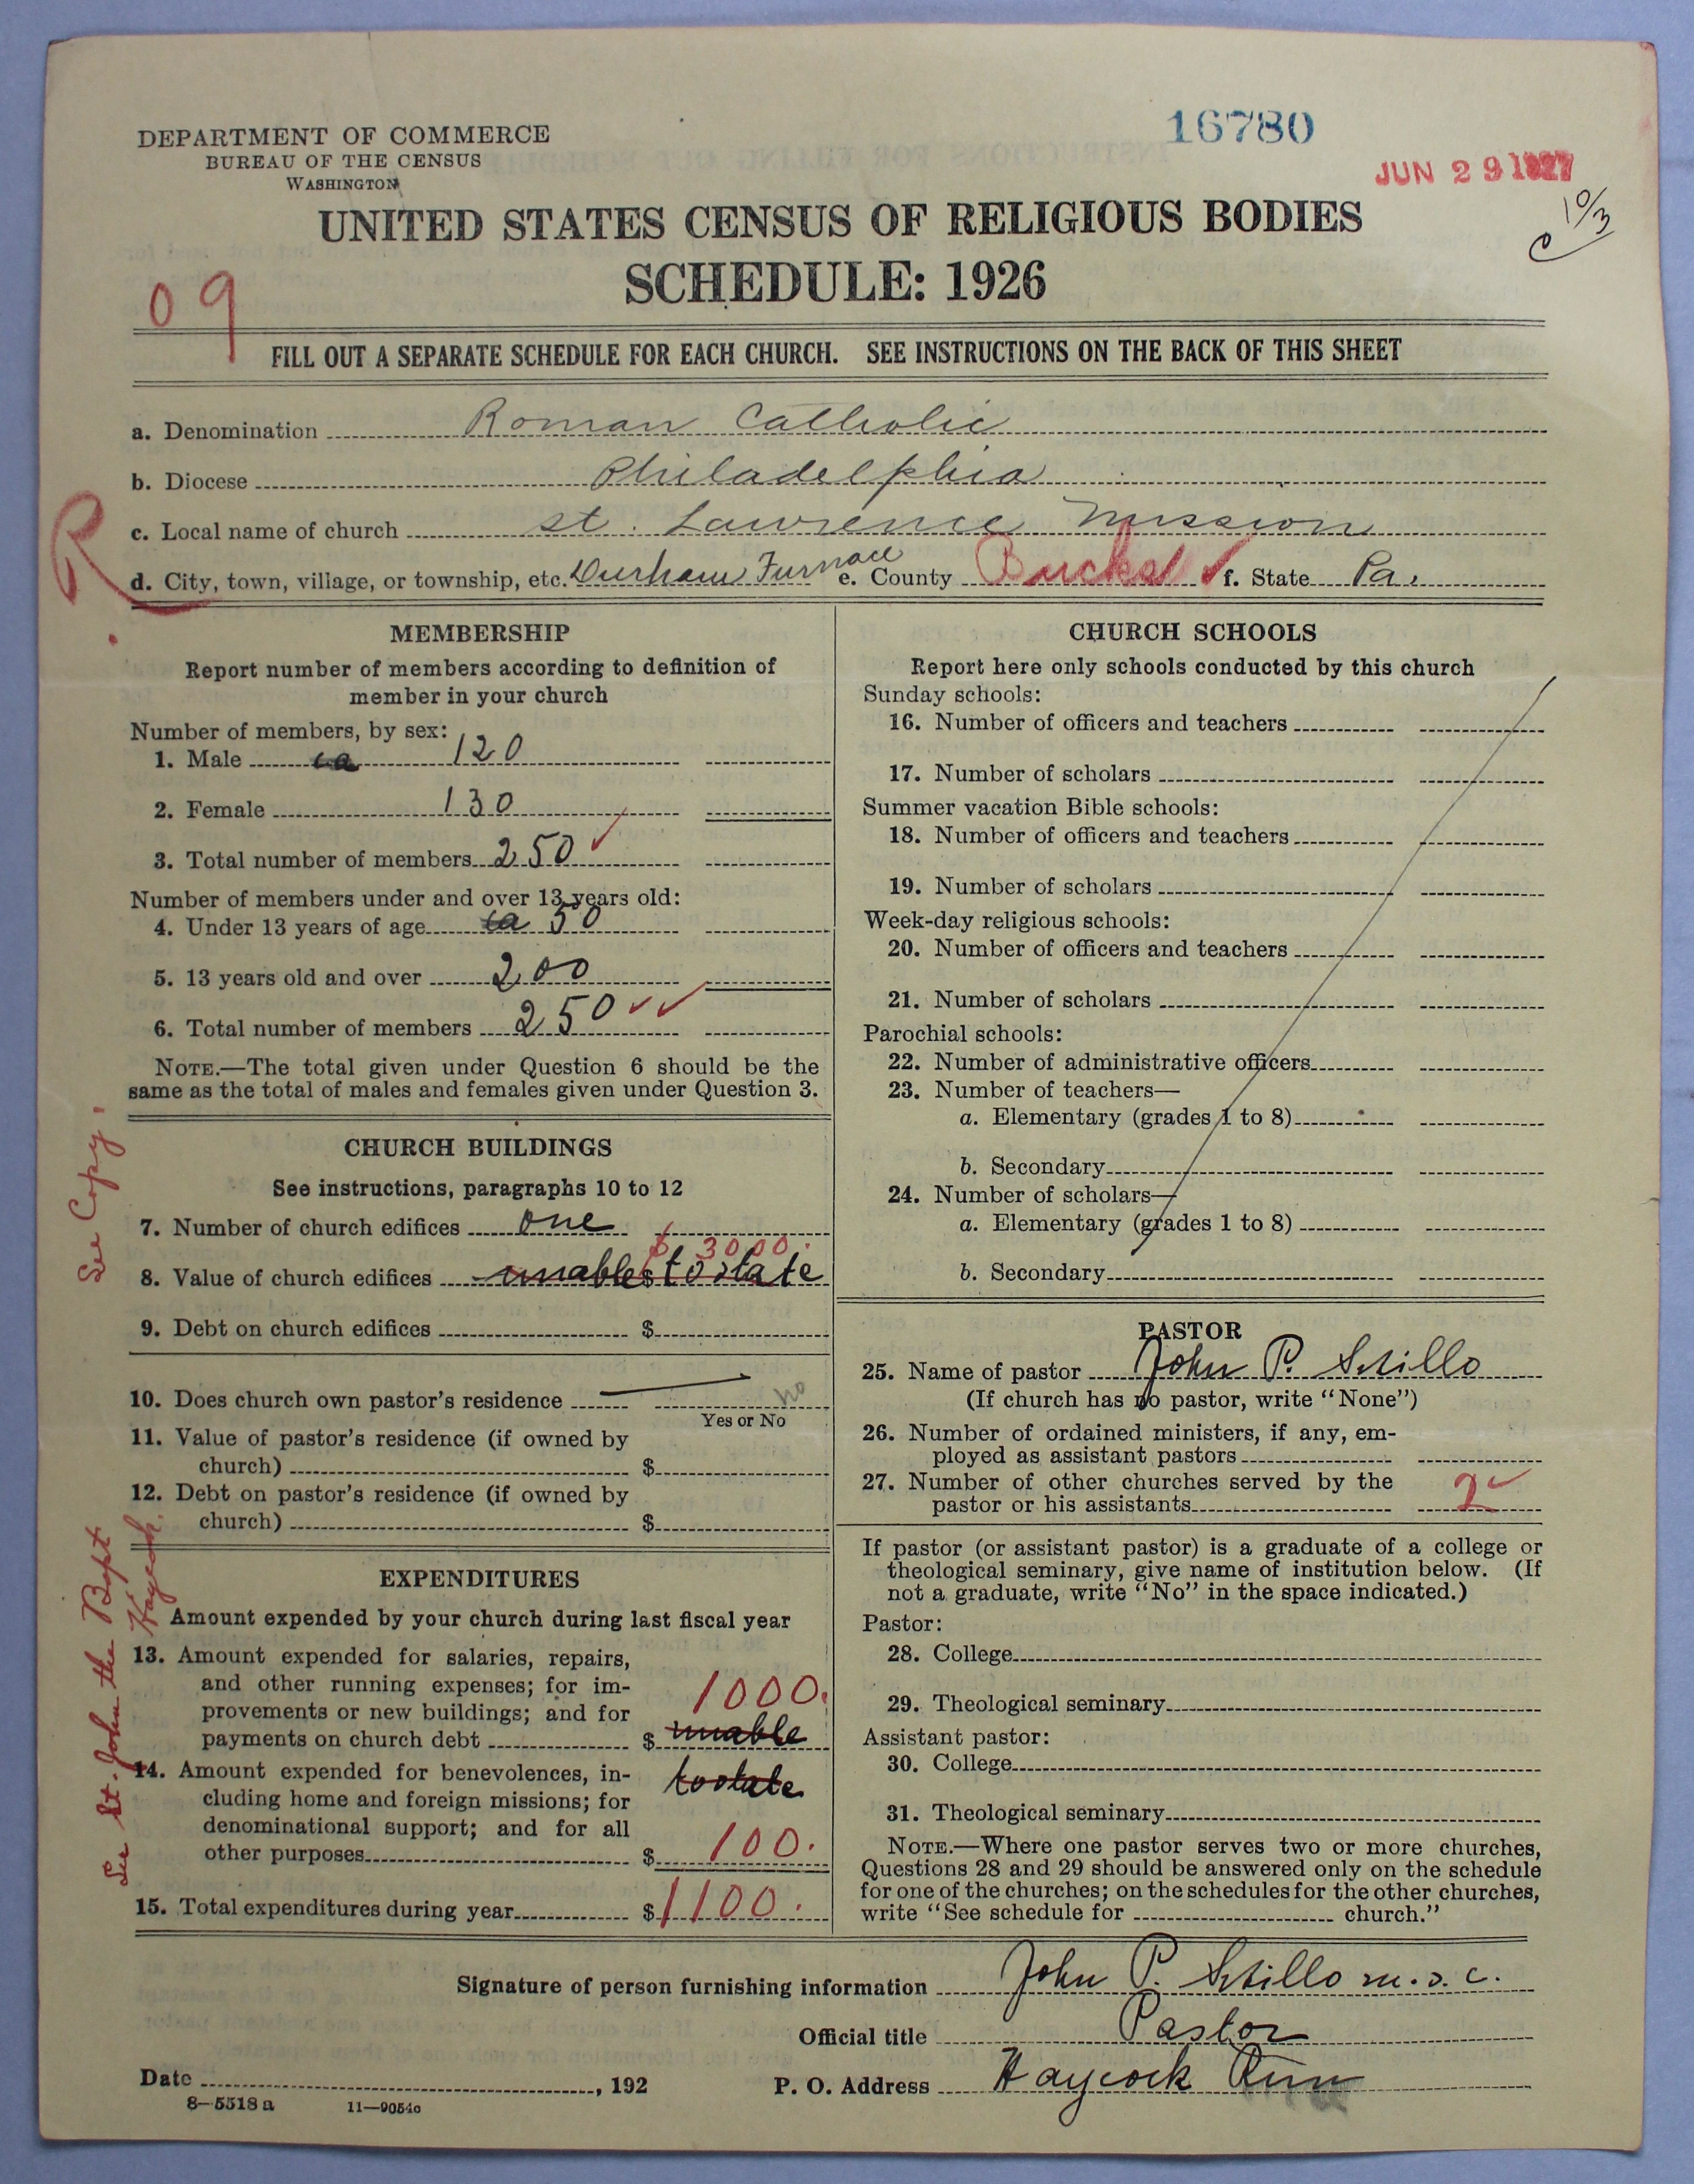 16780
JUN 29 1927
c 10/3
DEPARTMENT OF COMMERCE
BUREAU OF THE CENSUS
WASHINGTON
UNITED STATES CENSUS OF RELIGIOUS BODIES
SCHEDULE: 1926
09
FILL OUT A SEPARATE SCHEDULE FOR EACH CHURCH. SEE INSTRUCTIONS ON THE BACK OF THIS SHEET
a. Denomination Roman Catholic
b. Diocese Philadelphia
c. Local name of church St. Lawrence Mission
R
d. City, town, village, or township, etc. Durham Furnace e. County Bucks f. State Pa.
MEMBERSHIP
Report number of members according to definition of
member in your church
Number of members, by sex:
1. Male ca 120
2. Female 130
3. Total number of members 250
Number of members under and over 13 years old:
4. Under 13 years of age ca 50
5. 13 years old and over 200
6. Total number of members 250
NOTE.—The total given under Question 6 should be the
same as the total of males and females given under Question 3.
See Copy.
CHURCH BUILDINGS
See instructions, paragraphs 10 to 12
7. Number of church edifices one
$ 3000.
8. Value of church edifices unable $ to state
9. Debt on church edifices $
10. Does church own pastor's residence no
Yes or No
11. Value of pastor's residence (if owned by
church) $
12. Debt on pastor's residence (if owned by
church) $
See St. John the Bapt
Haycock
EXPENDITURES
Amount expended by your church during last fiscal year
13. Amount expended for salaries, repairs,
and other running expenses; for im-
provements or new buildings; and for
payments on church debt $ 1000.
unable
14. Amount expended for benevolences, in-
cluding home and foreign missions; for
denominational support; and for all
other purposes $ 100.
to state
15. Total expenditures during year $ 1100.
CHURCH SCHOOLS
Report here only schools conducted by this church
Sunday schools:
16. Number of officers and teachers
17. Number of scholars
Summer vacation Bible schools:
18. Number of officers and teachers
19. Number of scholars
Week-day religious schools:
20. Number of officers and teachers
21. Number of scholars
Parochial schools:
22. Number of administrative officers
23. Number of teachers—
a. Elementary (grades 1 to 8)
b. Secondary
24. Number of scholars—
a. Elementary (grades 1 to 8)
b. Secondary
PASTOR
25. Name of pastor John P.
(If church has no pastor, write "None")
26. Number of ordained ministers, if any, em-
ployed as assistant pastors
27. Number of other churches served by the
pastor or his assistants 2
If pastor (or assistant pastor) is a graduate of a college or
theological seminary, give name of institution below. (If
not a graduate, write "No" in the space indicated.)
Pastor:
28. College
29. Theological seminary
Assistant pastor:
30. College
31. Theological seminary
NOTE.—Where one pastor serves two or more churches,
Questions 28 and 29 should be answered only on the schedule
for one of the churches; on the schedules for the other churches,
write "See schedule for church."
Signature of person furnishing information John P. m.s.c.
Official title Pastor
Date , 192 P. O. Address Haycock Run
8—5518 a 11—9054c